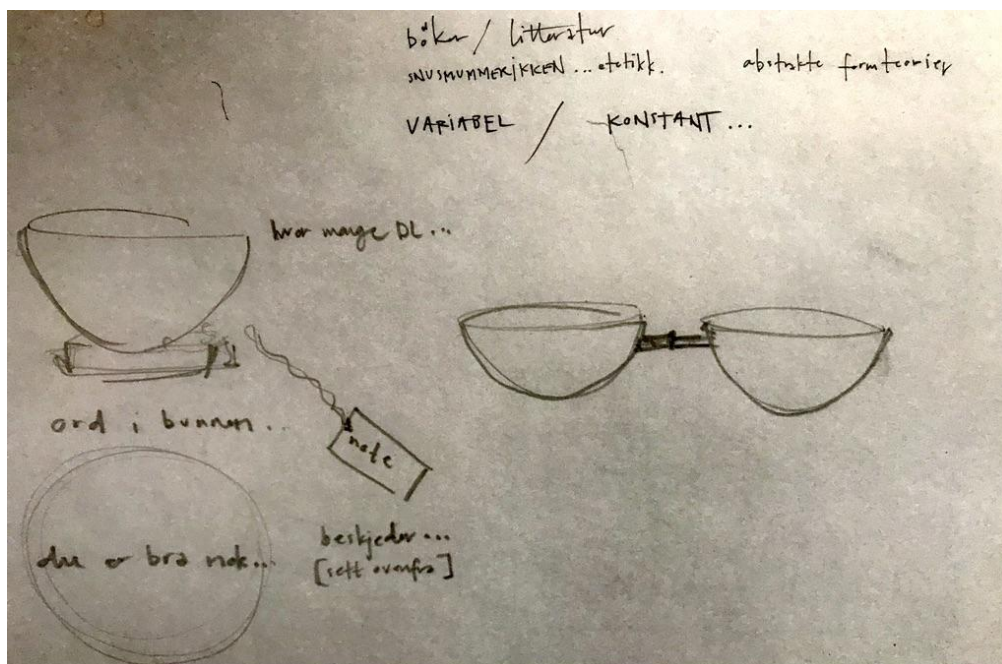 bøker / litteratur
SNUSMUMMERIKKEN... etetikk. abstrakte formteorier
VARIABEL / KONSTANT...
hvor mange DL...
ord i bunnen...
note
du er bra nok...
beskjeder...
[sett ovenfra]